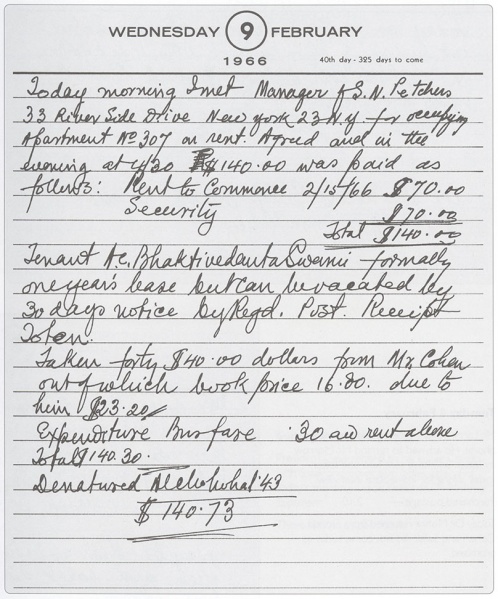 WEDNESDAY 9 FEBRUARY
1966 40th day - 325 days to come
Today morning I met Manager of S.N. Petchers
33 River Side Drive New York 23 N.Y for occupying
Apartment No 307 on rent. Agreed and in the
evening at 4/30 $140.00 was paid as
follows: Rent to Commence 2/15/66 $70.00
Security $70.00
Total $140.00
Tenant A.C. Bhaktivedanta Swami formally
one year's lease but can be vacated by
30 days notice by Regd. Post. Receipt
Token.
Taken forty $40.00 dollars from Mr. Cohen
out of which book price 16.80. due to
him $23.20/
Expenditure Bus fare .30 and rent above
Total $140.30.
Denatured Alchohol .43
$140.73